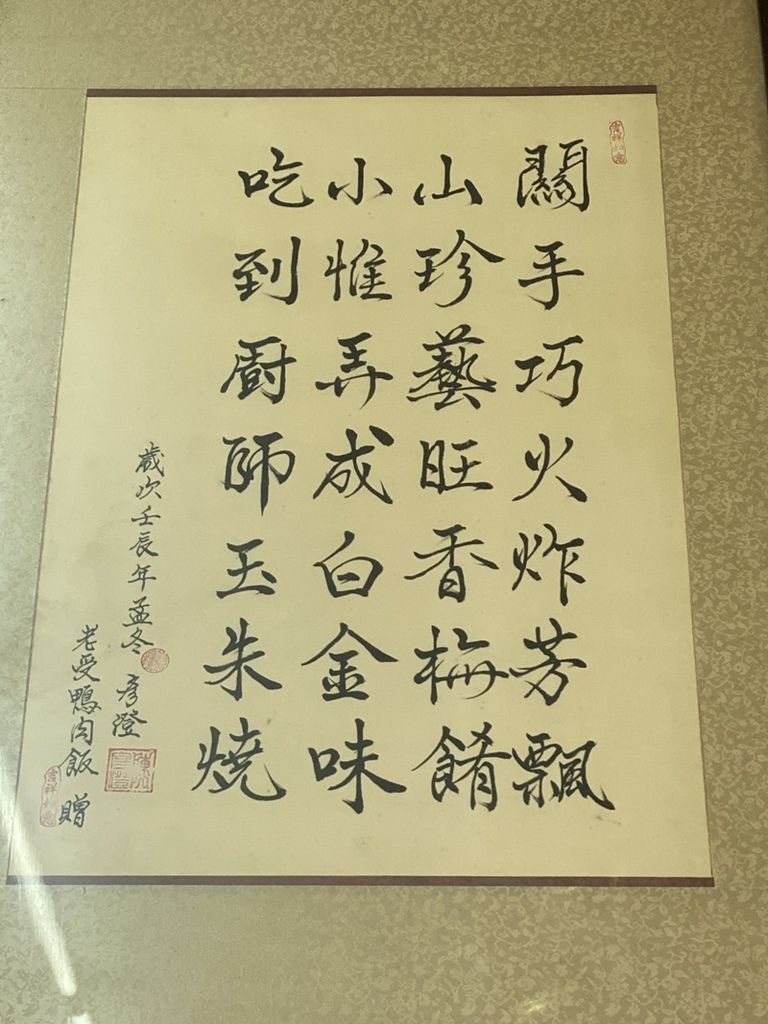 關手巧火炸芳飄
山珍藝旺香梅餚
小惟弄成白金味
吃到廚師玉朱燒
歲次壬辰年孟冬
彥澄
老受鴨肉飯 贈
吉祥如意
吉祥如意